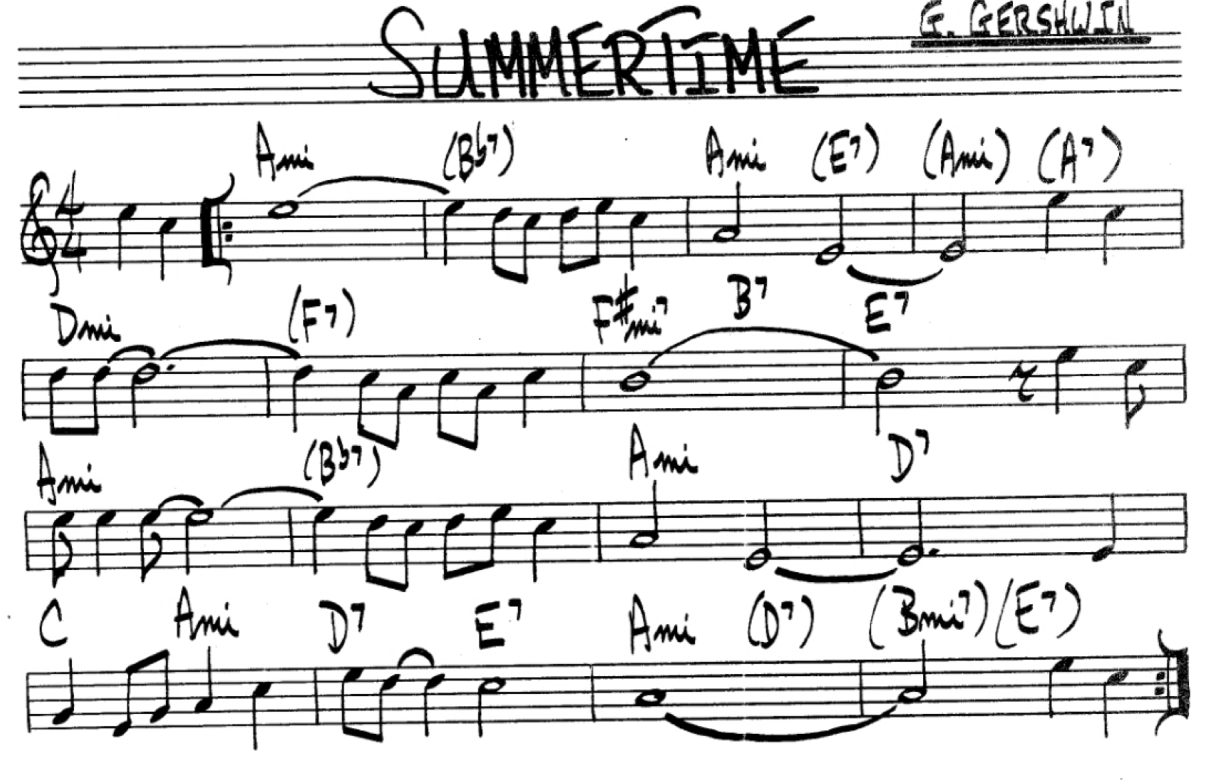 SUMMERTIME
G. GERSHWIN
Ami (Bb7) Ami (E7) (Ami) (A7)
4
4
Dmi (F7) F#mi7 B7 E7
Ami (Bb7) Ami D7
C Ami D7 E7 Ami (D7) (Bmi7) (E7)